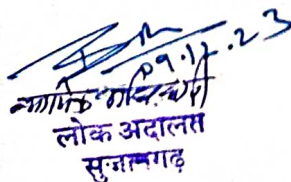 09.12.23
न्यायिक अधिकारी
लोक अदालत
सुजानगढ़